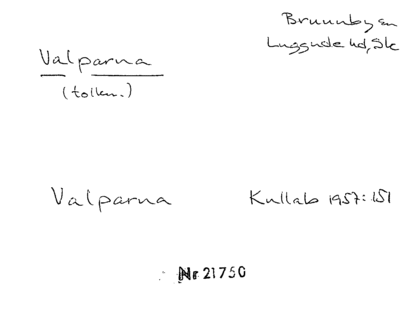 Brunnby sn
Luggude hd, Sk
Valparna
(tolkn.)
Valparna Kullab 1957: 151
Nr 21750